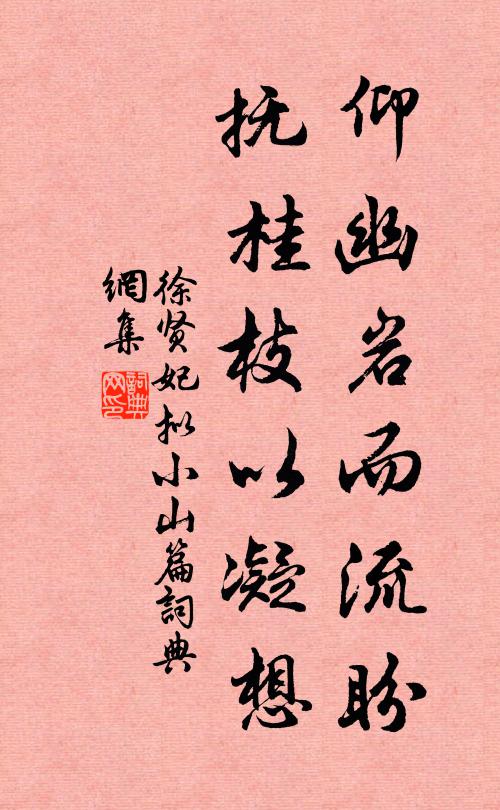 仰幽岩而流盼
抚桂枝以凝想
徐贤妃拟小山篇詞典
網集
詞典
网印